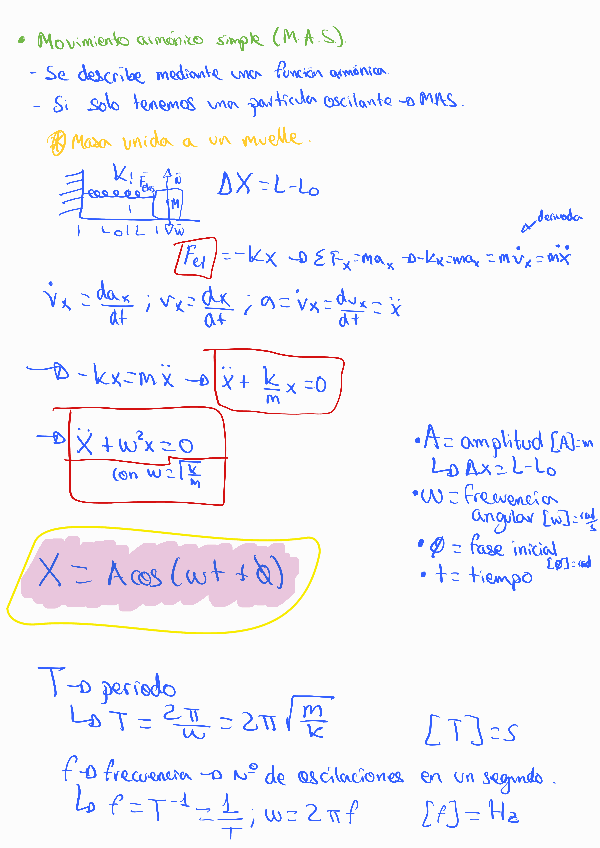 • Movimiento armónico simple (M.A.S).
- Se describe mediante una función armónica.
- Si solo tenemos una partícula oscilante → MAS.
* Masa unida a un muelle.
K Felas N M W
L0 L
ΔX = L-L0
derivada
Fel = -KX → ΣFx = max → -Kx = max = mv̇x = mẍ
v̇x = dax/dt ; vx = dx/dt ; a = v̇x = dvx/dt = ẍ
→ -kx = mẍ → ẍ + k/m x = 0
→ Ẍ + w²x = 0
con w = √k/m
• A = amplitud [A]=m
↳ Ax = L-L0
• w = frecuencia
angular [w]=rad/s
• Ø = fase inicial
[Ø]=rad
• t = tiempo
X = A cos (wt + Ø)
T → periodo
↳ T = 2π/w = 2π√m/k
[T] = s
f → frecuencia → Nº de oscilaciones en un segundo.
↳ f = T⁻¹ = 1/T ; w = 2πf
[f] = Hz